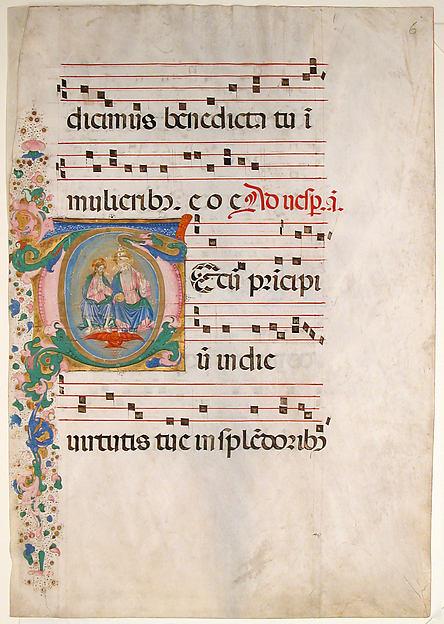 6
dicimus benedicta tu ī
mulieribꝫ. e o e Ad uesp. i.
Tecū pricipi
ū in die
uirtutis tue in splēdoribꝫ